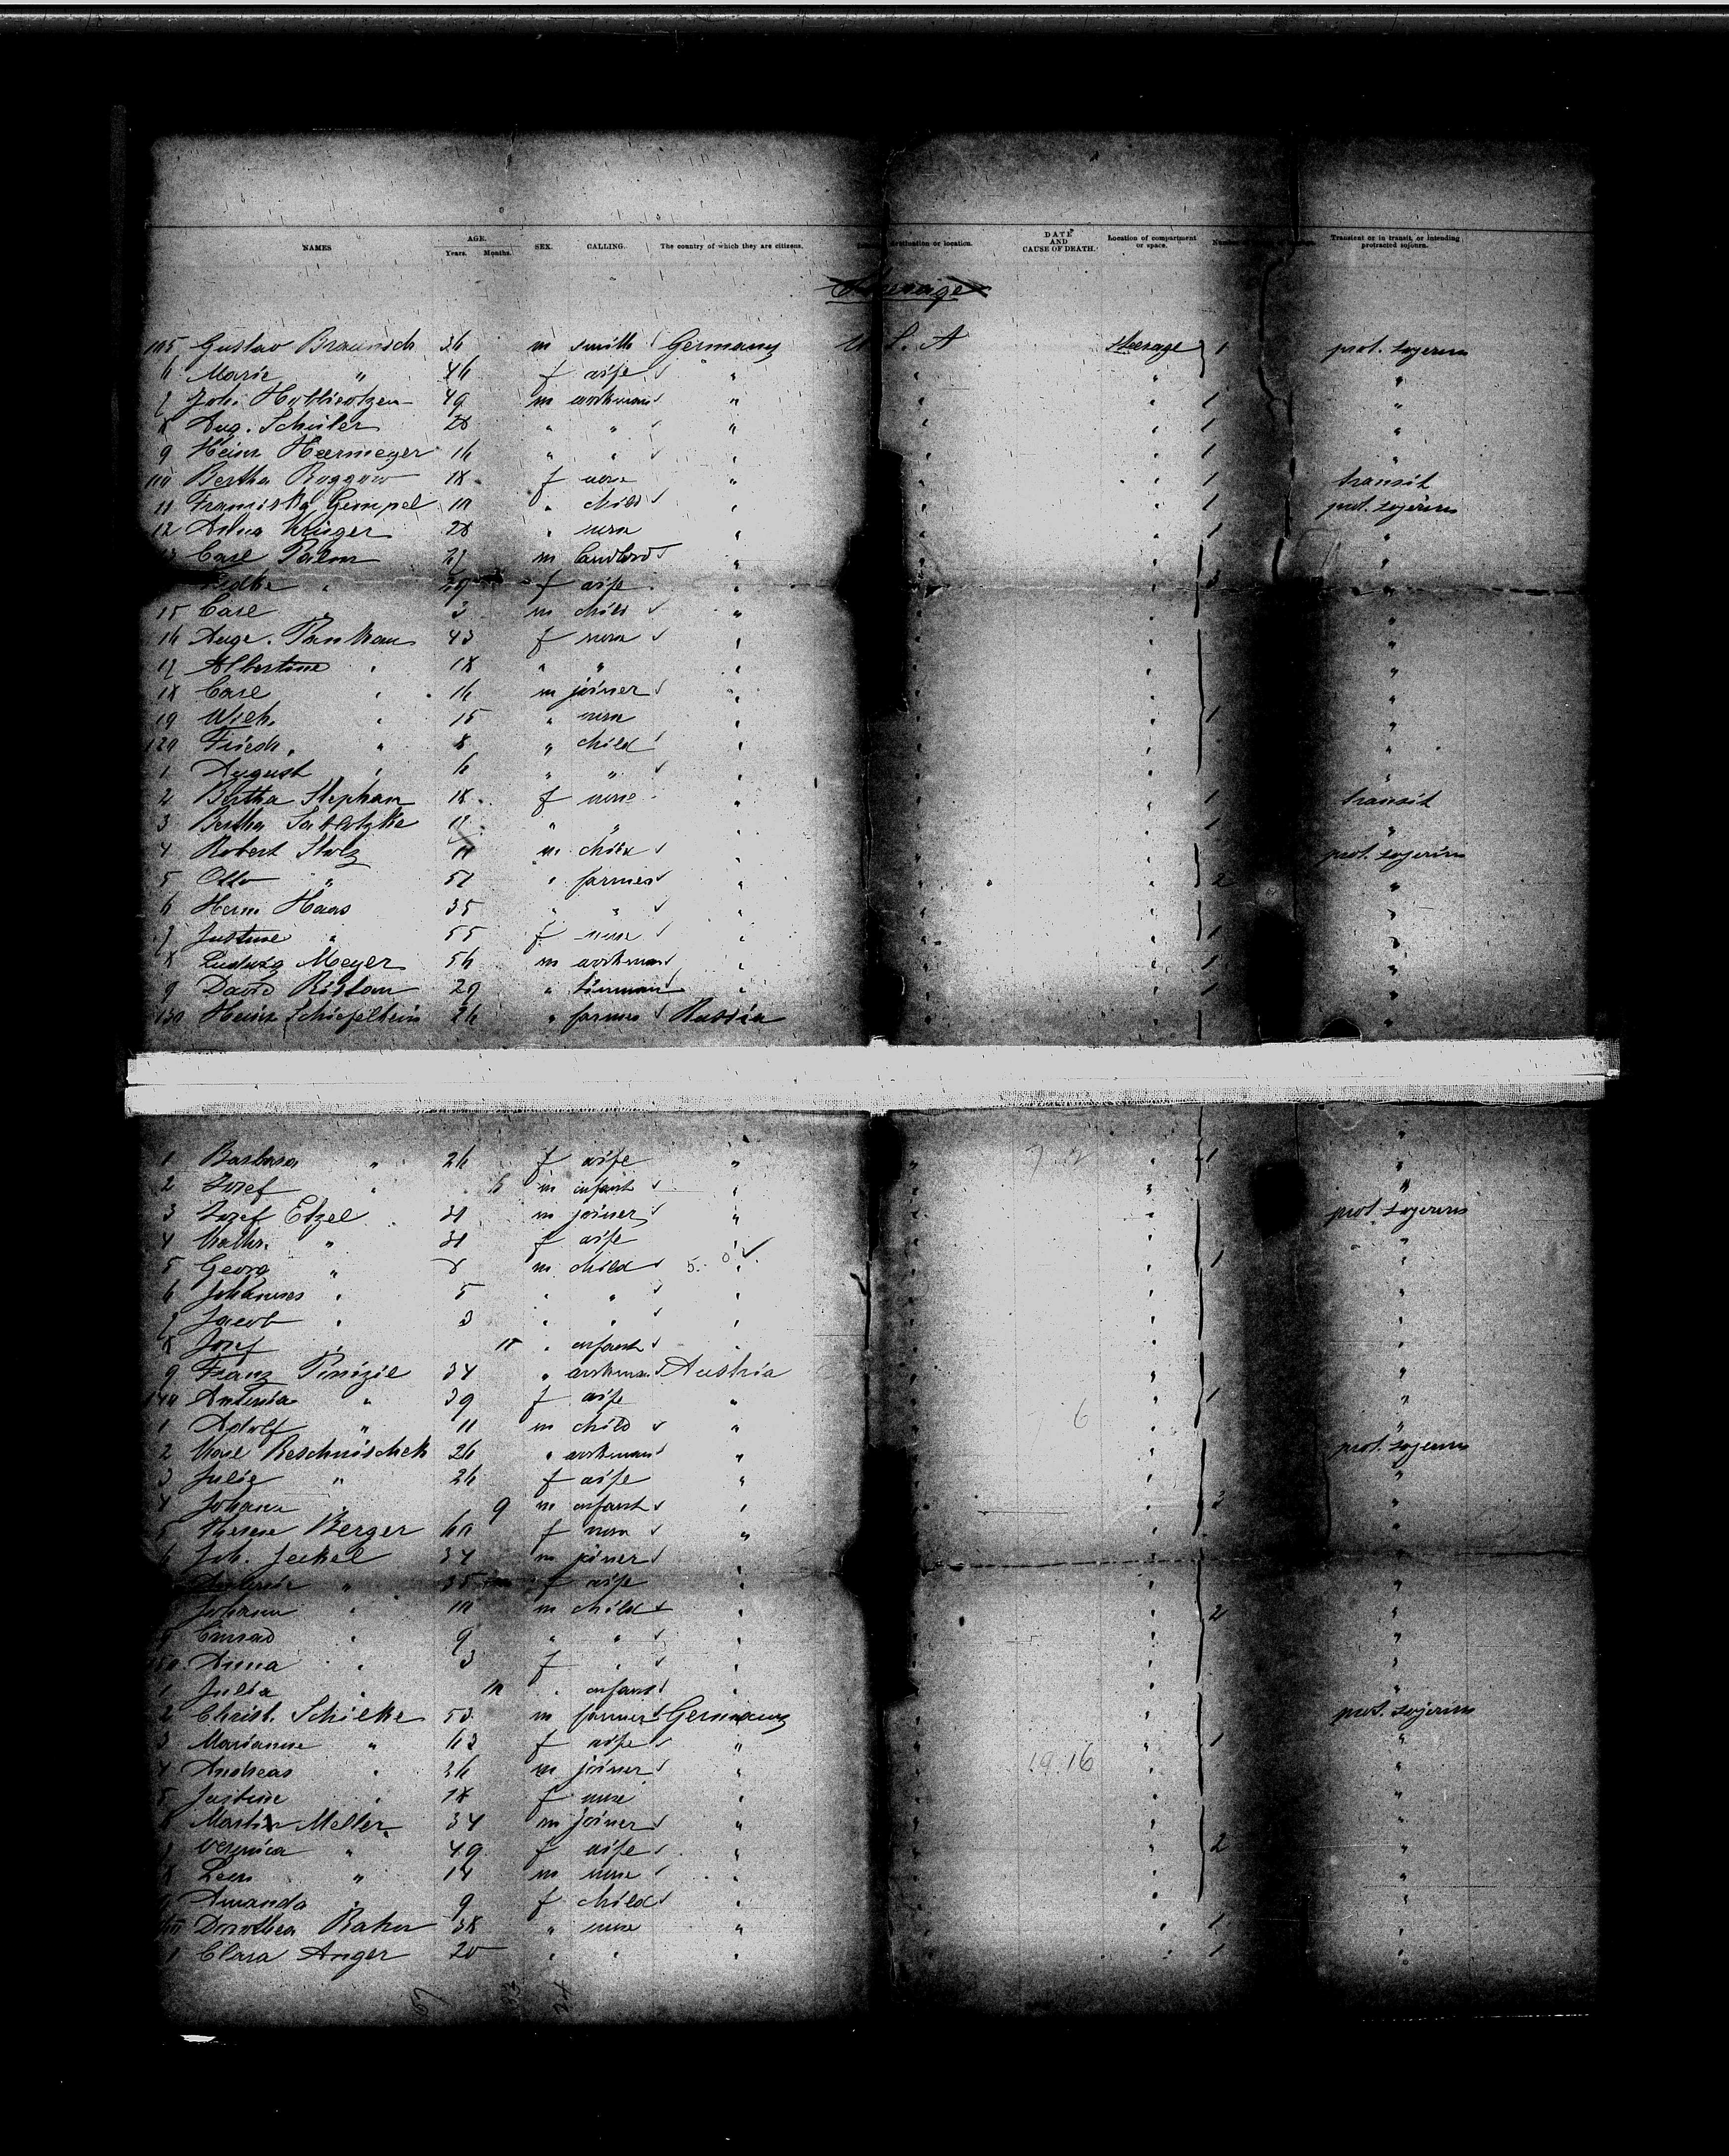 NAMES AGE. Years. Months. SEX. CALLING. The country of which they are citizens. destination or location. DATE AND CAUSE OF DEATH. Location of compartment or space. Number Transient or in transit, or intending protracted sojourn.
Steerage
105 Gustav Braunsch 36 m smith Germany U.S.A Steerage 1 prot. sojourn
6 Marie " 46 f wife " " " "
7 Joh. 49 m workman " " " 1 "
8 Aug. Schüler 28 " " " " " 1 "
9 Heinr. Heermeyer 16 " " " " " 1 "
110 Bertha Roggow 18 f none " " " 1 transit
11 Franziska Gempel 10 " child " " " 1 prot. sojourn
12 Anna Krüger 28 " none " " " 1 "
Carl Palm 27 m landlord " " " "
29 f wife " " " 3 "
15 Carl " 3 m child " " " "
16 Auge. Pankau 43 f none " " " "
17 Albertine " 18 " " " " " "
18 Carl " 16 m joiner " " " "
19 Wilh. " 15 " none " " " 1 "
120 Friedr. " 8 " child " " " "
1 August " 6 " " " " " "
2 Bertha Stephan 18 f none " " " 1 transit
3 Bertha 17 " " " " " 1 "
4 Robert Stolz 11 m child " " " prot. sojourn
5 Otto " 57 " farmer " " " 2 "
6 Herm. Haas 35 " " " " " "
7 Justine " 55 f none " " " 1 "
8 Ludwig Meyer 56 m workman " " " 1 "
9 David Ristau 29 " " " " 1 "
130 Heinr. Schiefelbein 26 " farmer Russia " " "
1 Barbara " 26 f wife " " " 1 "
2 Josef " 6 m infant " " " "
3 Josef Etzel 31 m joiner " " " prot. sojourn
4 Kathr. " 31 f wife " " " "
5 Georg " 8 m child " " " 1 "
6 Johannes " 5 " " " " " "
7 Jacob " 3 " " " " " "
8 Josef " 10 " infant " " " "
9 Franz 34 " workman Austria " " "
140 Antonia " 39 f wife " " " 1 "
1 Adolf " 11 m child " " " "
2 Karl Reschnischek 26 " workman " " " prot. sojourn
3 Julie " 26 f wife " " " "
4 Johann " 9 m infant " " " 3 "
5 Therese Berger 60 f none " " " "
6 Joh. Jeckel 34 m joiner " " " "
" 35 f wife " " " "
Johann " 10 m child " " " 2 "
9 Conrad " 9 " " " " " "
150 Anna " 3 f " " " " "
1 Julia " 10 " infant " " " "
2 Christ. Schielke 53 m farmer Germany " " prot. sojourn
3 Marianne " 63 f wife " " " 1 "
4 Andreas " 36 m joiner " " " "
5 Justine " 18 f none " " " "
6 Martin Meller 34 m joiner " " " "
7 Veronica " 49 f wife " " " 2 "
8 Leon " 14 m none " " " "
9 Amanda " 9 f child " " " "
160 Dorothea Bahn 38 " none " " " 1 "
1 Clara Anger 20 " " " " " 1 "